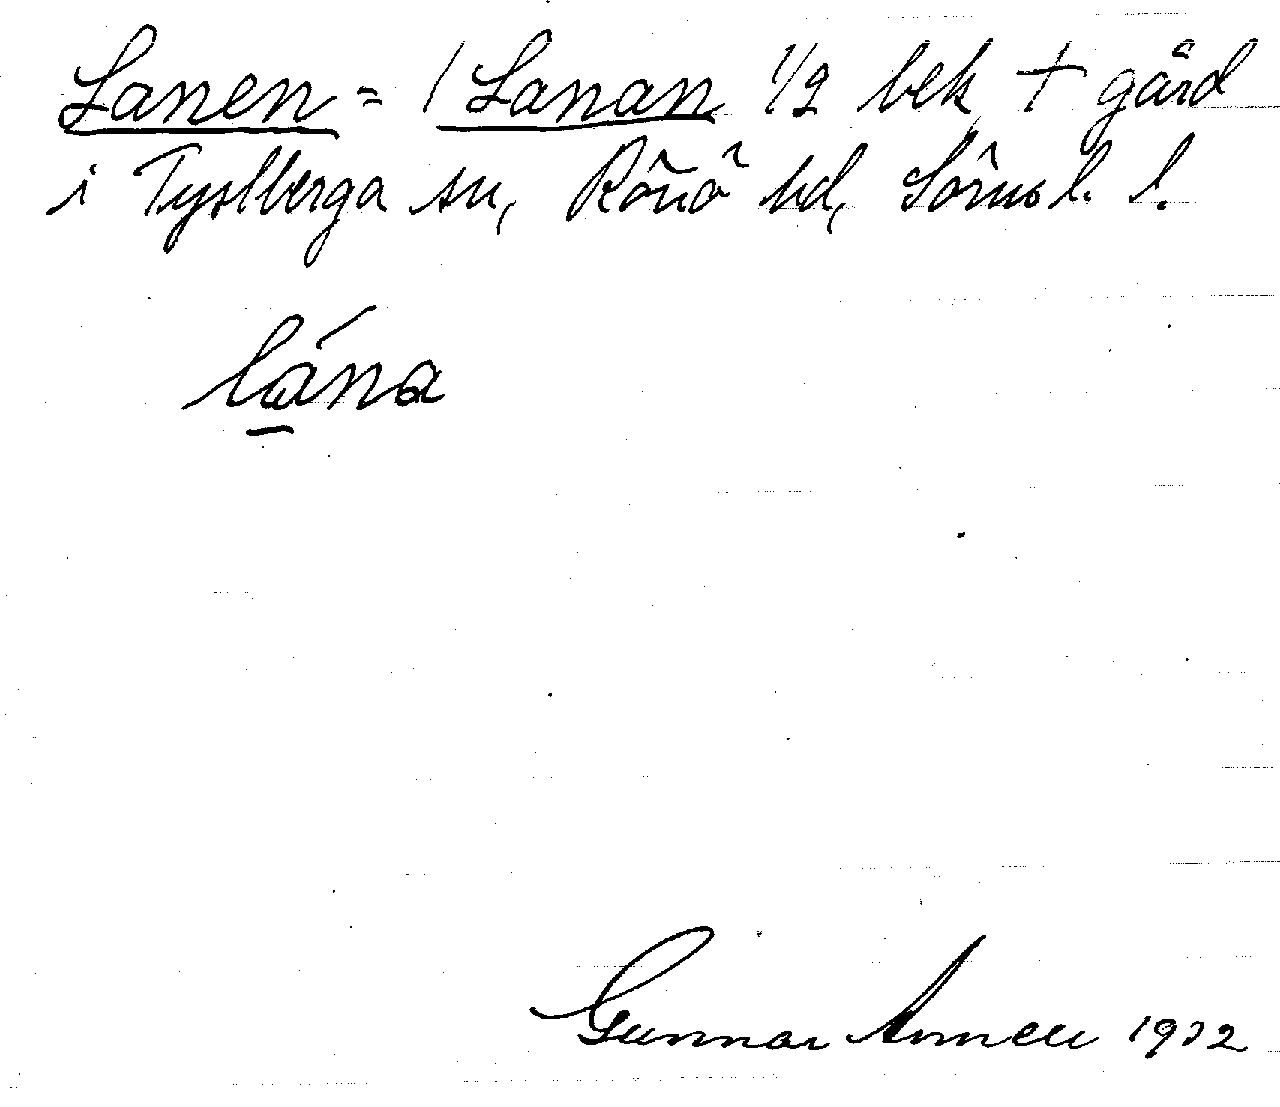 Lanen = / Lanan 1/2 bek + gård
i Tystberga sn, Rönö hd, Sörml. l.
lána
Gunnar Annell 1932